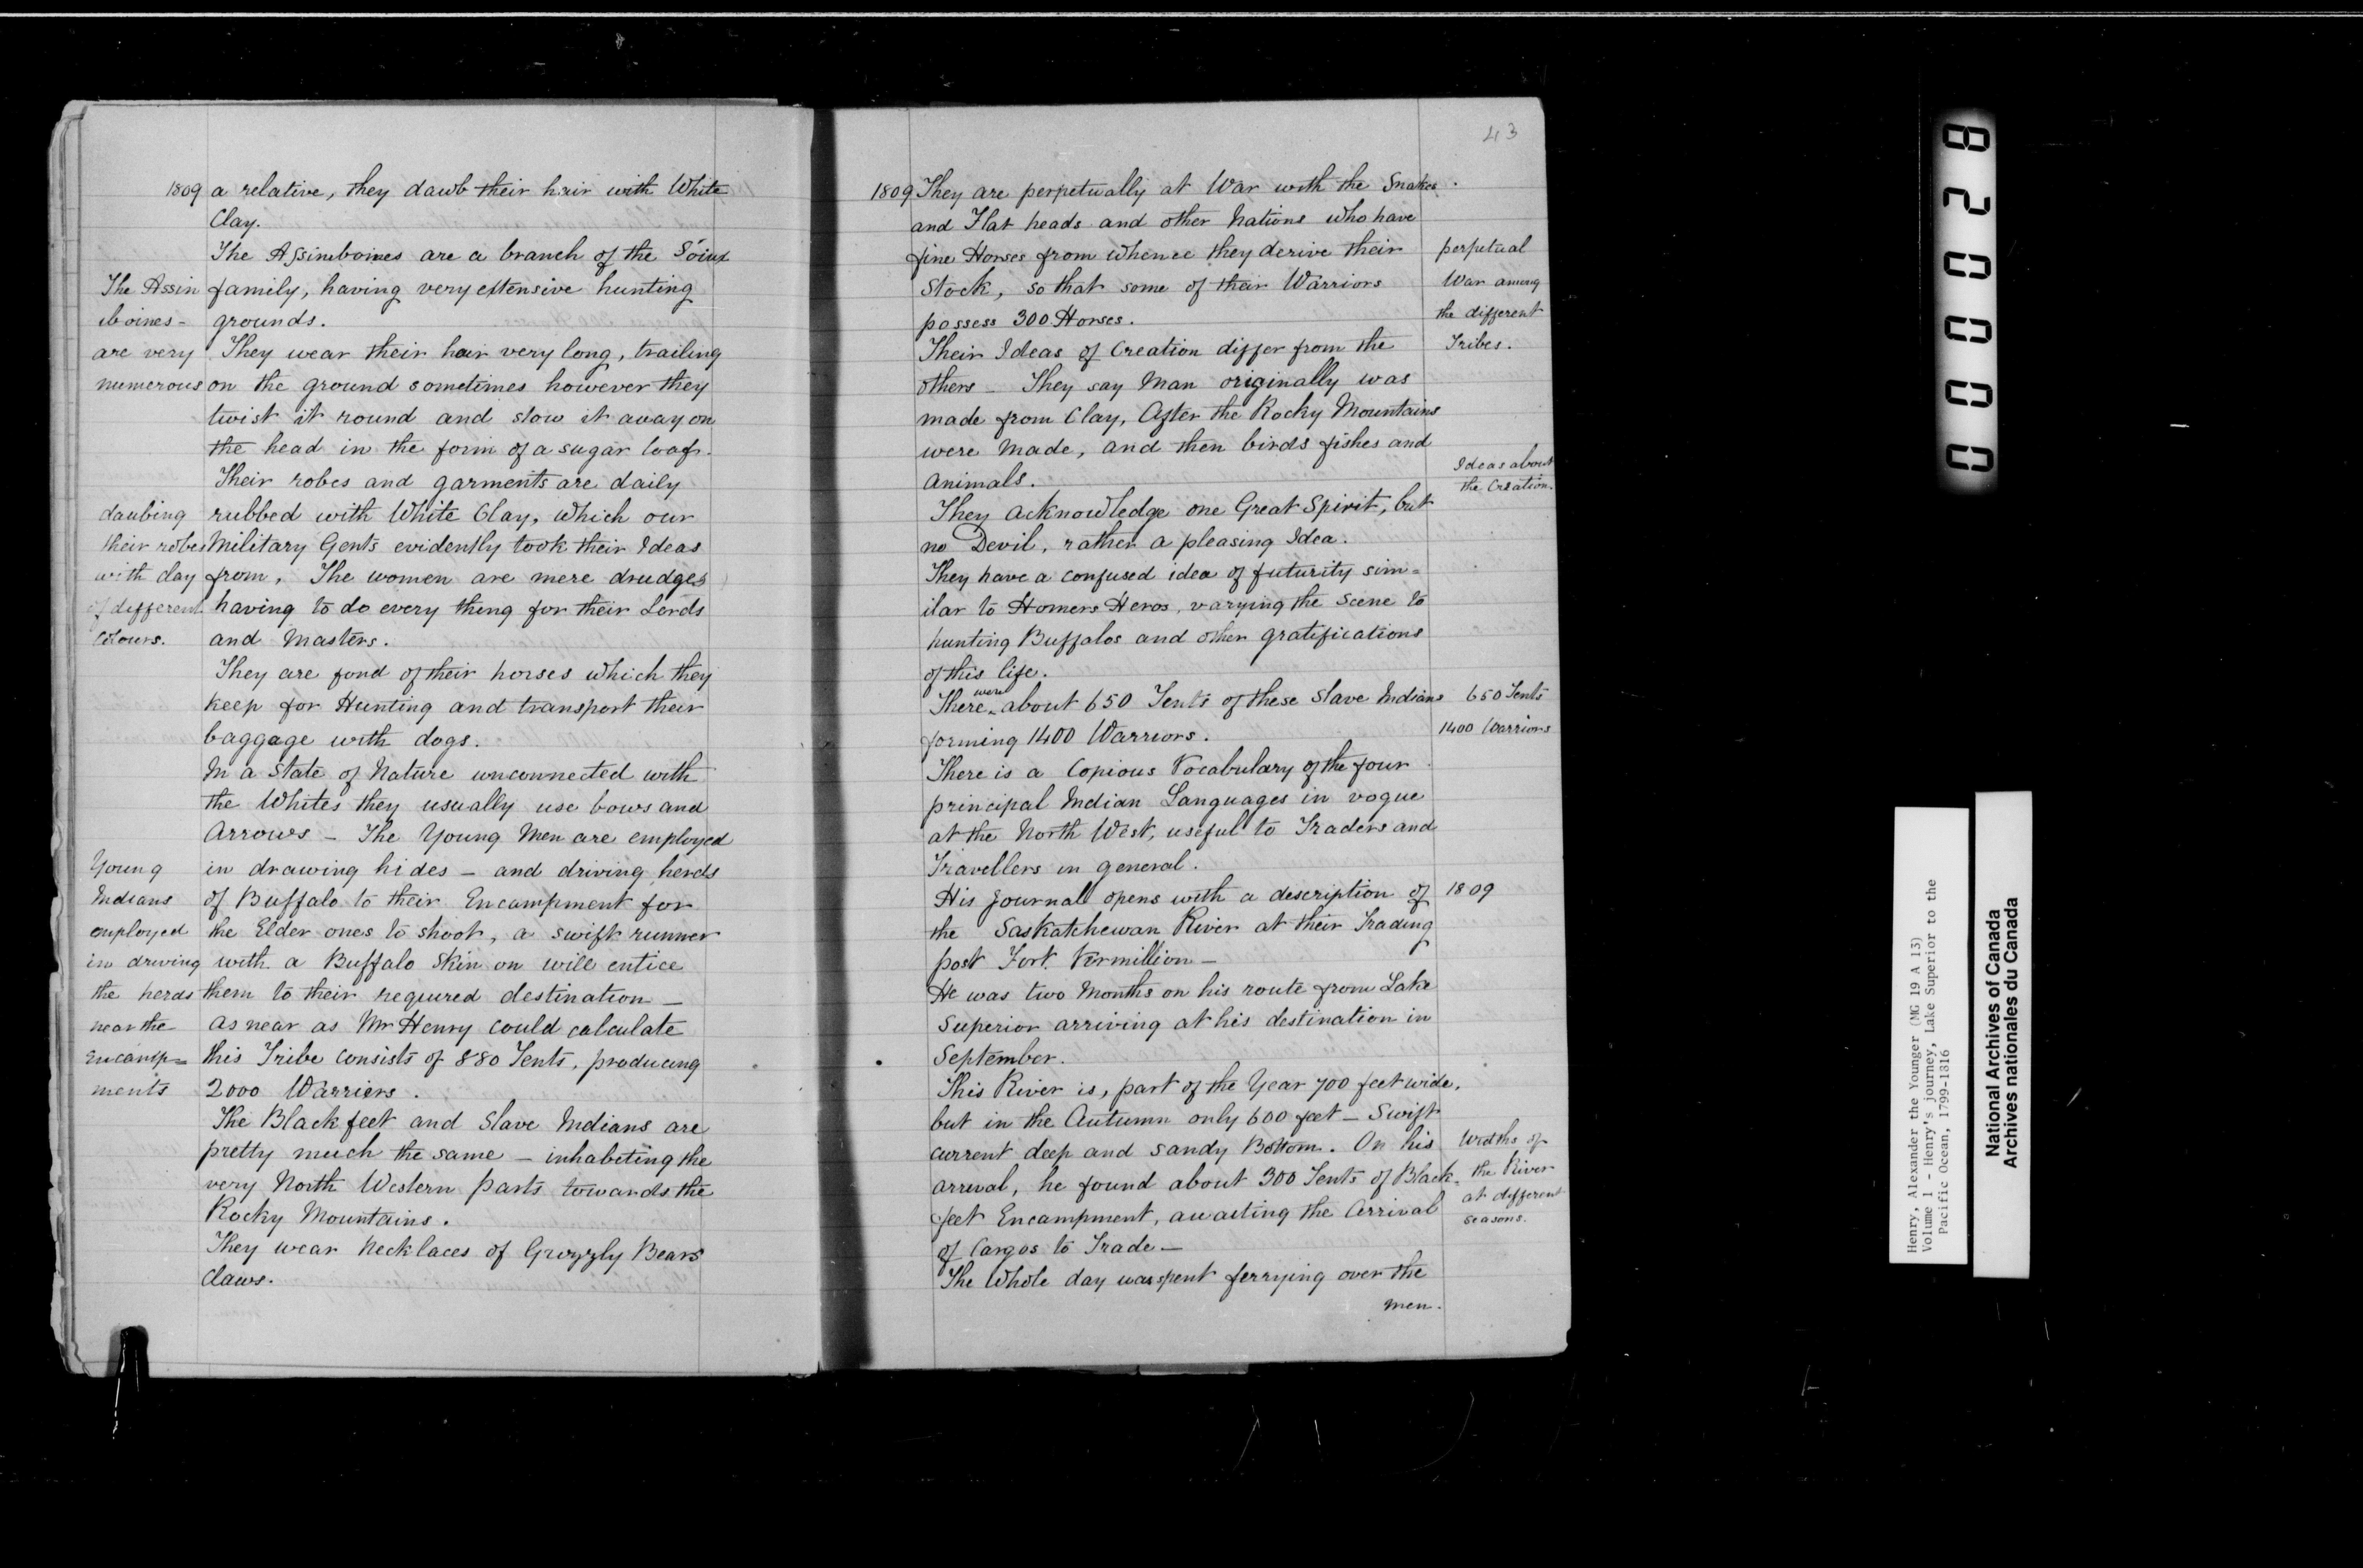 1809 a relative, they dawb their hair with White
Clay.
The Assineboines are a branch of the Sóiux
The Assin family, having very extensive hunting
iboines - grounds.
are very They wear their hair very long, trailing
numerous on the ground sometimes however they
twist it round and stow it away on
the head in the form of a sugar loaf.
Their robes and garments are daily
daubing rubbed with White Clay, which our
their robes Military Gents evidently took their Ideas
with clay from, The women are mere drudges
of different having to do every thing for their Lords
Colours. and Masters.
They are fond of their horses which they
keep for Hunting and transport their
baggage with dogs.
In a State of Nature unconnected with
the Whites they usually use bows and
Arrows - The Young Men are employed
Young in drawing hides - and driving herds
Indians of Buffalo to their Encampment for
employed the Elder ones to shoot, a swift runner
in driving with a Buffalo Skin on will entice
the herds them to their required destination -
near the as near as Mr Henry could calculate
encamp= this Tribe consists of 880 Tents, producing
ments 2000 Warriers.
The Black feet and Slave Indians are
pretty much the same - inhabiting the
very North Western parts towards the
Rocky Mountains.
They wear necklaces of Gruzzly Bears
Claws.
43
1809 They are perpetually at War with the Snakes
and Flat heads and other Nations who have
fine Horses from whence they derive their perpetual
Stock, so that some of their Warriors War among
possess 300 Horses. the different
Their Ideas of Creation differ from the Tribes.
others - They say Man originally was
made from Clay, After the Rocky Mountains
were Made, and then birds fishes and
Animals. Ideas about
the Creation.
They acknowledge one Great Spirit, but
no Devil, rather a pleasing Idea.
They have a confused idea of futurity sim=
ilar to Homers Heros, varying the Scene to
hunting Buffalos and other gratifications
of this life.
There were about 650 Tents of these Slave Indians 650 Tents
forming 1400 Warriors. 1400 Warriors
There is a Copious Vocabulary of the four
principal Indian Languages in vogue
at the North West, useful to Traders and
Travellers in general.
His Journal opens with a description of 1809
the Saskatchewan River at their Trading
post Fort Vermillion -
He was two Months on his route from Lake
Superior arriving at his destination in
September.
This River is, part of the Year 700 feet wide,
but in the Autumn only 600 feet - Swift
current deep and sandy Bottom. On his Widths of
arrival, he found about 300 Tents of Black- the River
feet Encampment, awaiting the Arrival at different
seasons.
of Cargos to Trade -
The Whole day was spent ferrying over the
men.
0000028
Henry, Alexander the Younger (MG 19 A 13)
Volume 1 - Henry's journey, Lake Superior to the
Pacific Ocean, 1799-1816
National Archives of Canada
Archives nationales du Canada